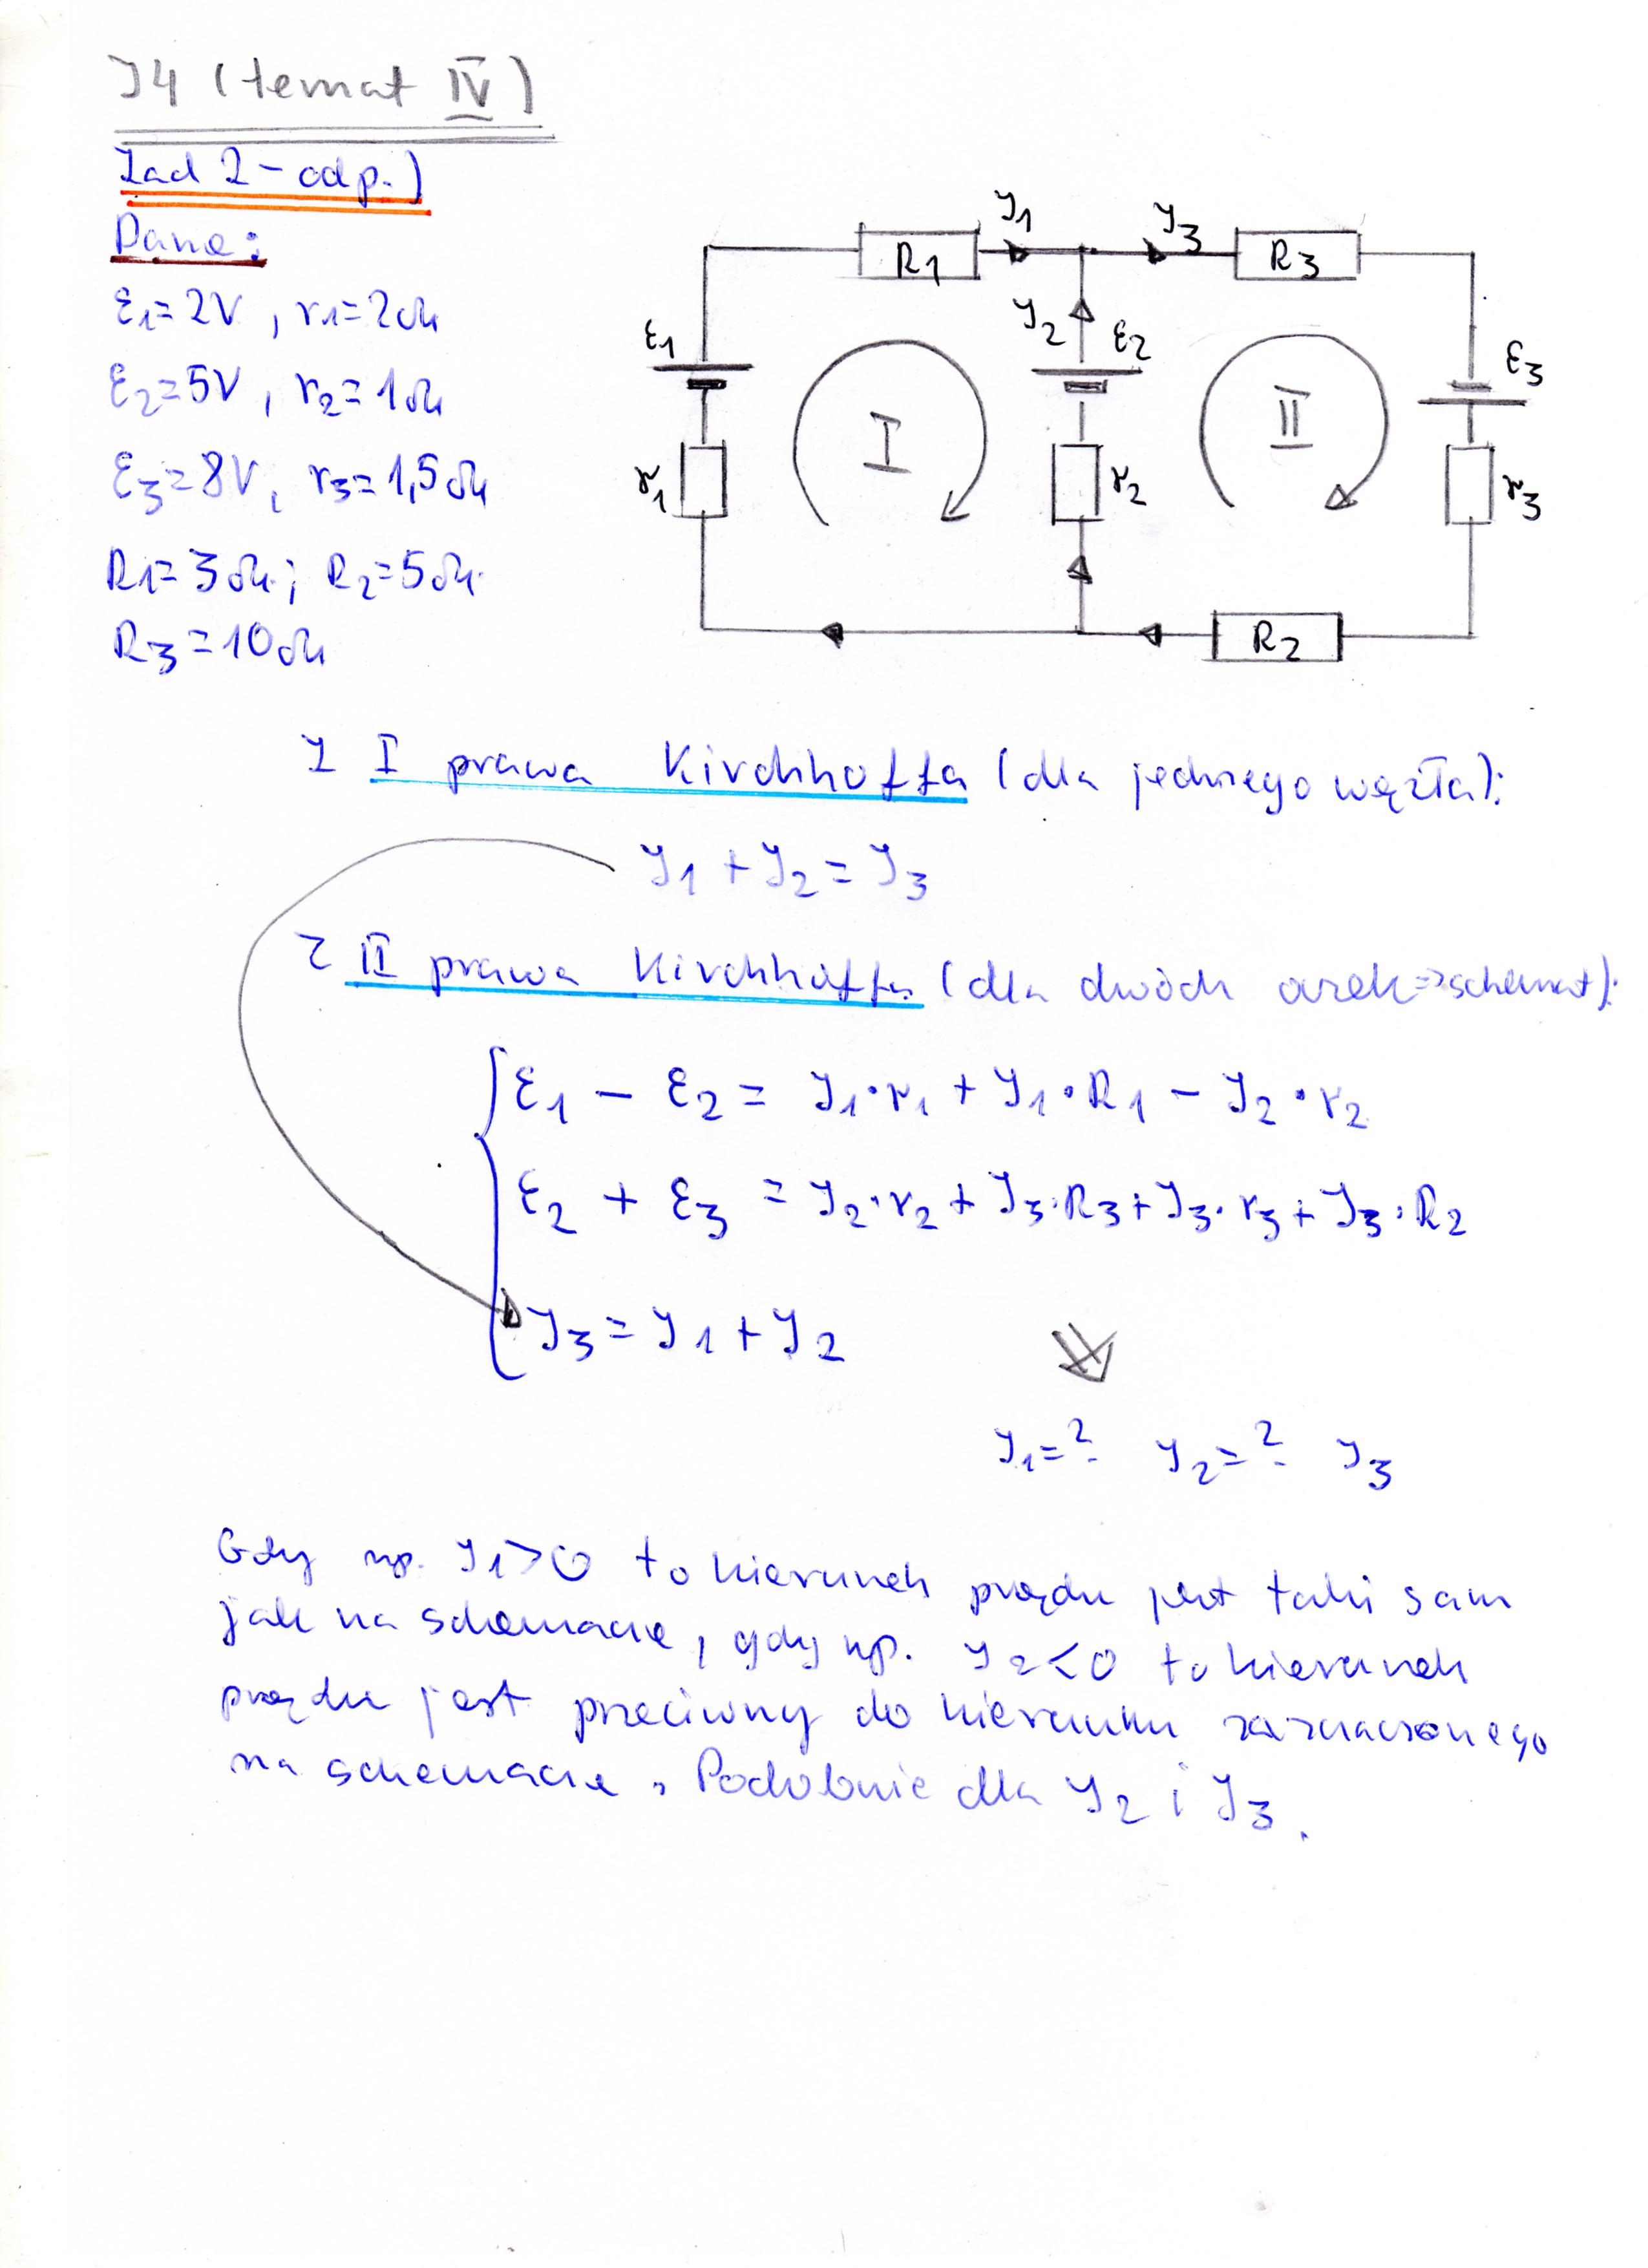 J4 (temat IV)
Zad 2 - odp.)
Dane:
ε1 = 2V , r1 = 2Ω
ε2 = 5V , r2 = 1Ω
ε3 = 8V , r3 = 1,5Ω
R1 = 3Ω ; R2 = 5Ω
R3 = 10Ω
J1 J3
R1 R3
J2
ε1 ε2 ε3
I II
r1 r2 r3
R2
Z I prawa Kirchhoffa (dla jednego węzła):
J1 + J2 = J3
Z II prawa Kirchhoffa (dla dwóch oczek => schemat):
ε1 - ε2 = J1·r1 + J1·R1 - J2·r2
ε2 + ε3 = J2·r2 + J3·R3 + J3·r3 + J3·R2
J3 = J1 + J2
J1 = ? J2 = ? J3
Gdy np. J1 > 0 to kierunek prądu jest taki sam
jak na schemacie, gdy np. J2 < 0 to kierunek
prądu jest przeciwny do kierunku zaznaczonego
na schemacie. Podobnie dla J2 i J3.